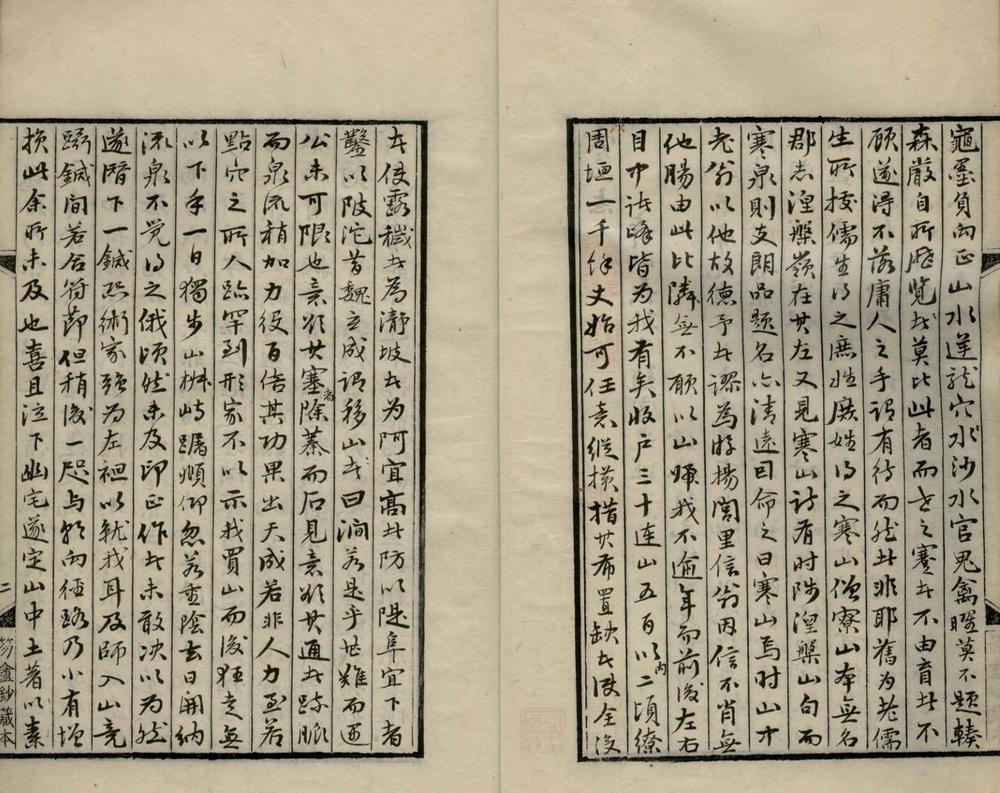 龜墨負向正山水逆龍穴水沙水官鬼禽曜莫不題輳
森嚴自所歷覽求莫比此者而老之蹇者不由育者不
顧遂得不落庸人之手謂有待而然者非耶舊為老儒
生所據儒生得之庶姓庶姓得之寒山僧寮山本無名
郡志涅槃嶺在其左又見寒山詩有時陟涅槃山句而
寒泉則支朗品題名亦清遠因命之曰寒山焉时山中
老翁以他故德予者謬為游揚閭里信翁因信不肖無
他腸由此比隣無不願以山畀我不逾年而前後左右
目中諸峰皆為我有矣收户三十連山五百以內二頃繚
周垣一千餘丈始可任意縱橫措其布置缺者使全沒
者使露穢者為淨坡者為阿宜高者防以隄阜宜下者
鑿以陂沱昔魏立成謂移山者曰澗若是乎甘難而迺
公未可限也意欲其塞者除蓁而后見意欲其通者跡脈
而泉流稍加力役百倍其功果出天成若非人力至若
點穴之所人跡罕到形家不以示我買山而後狂走無
以下手一日獨步山椒峙躇頫仰忽若重陰玄日開納
流泉不覺得之俄頃然未及印正作者未敢决以為然
遂隋下一鍼恐術家強為左袒以就我耳及師入山竟
躋鍼間若合符節但稍後一咫与始向徑路乃小有增
損此余所未及也喜且泣下幽宅遂定山中土著以素
二
笏盦鈔藏本